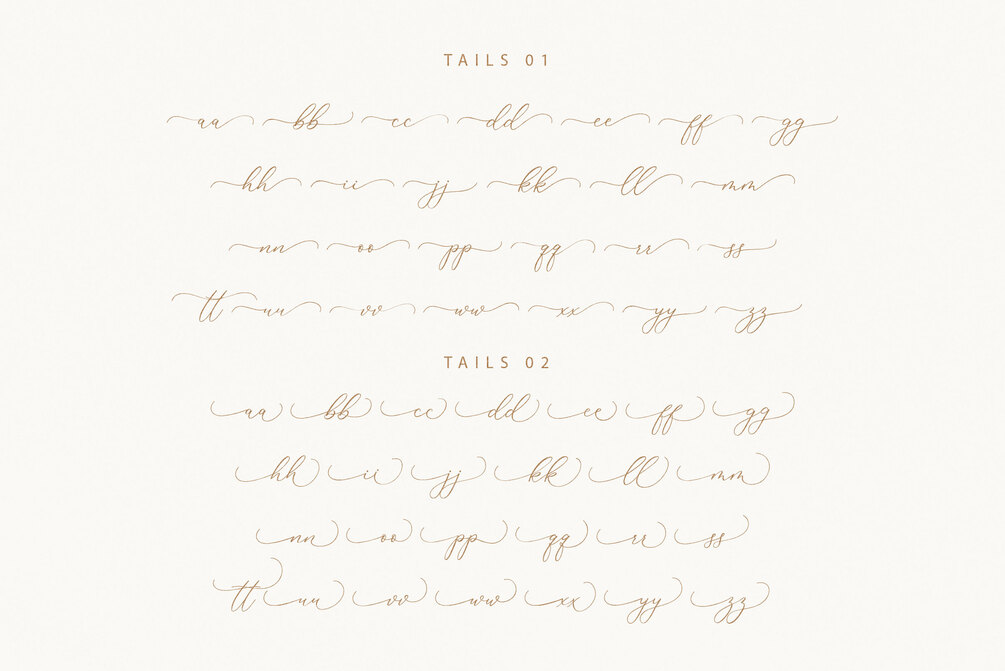 TAILS 01
aa bb cc dd ee ff gg
hh ii jj kk ll mm
nn oo pp qq rr ss
tt uu vv ww xx yy zz
TAILS 02
aa bb cc dd ee ff gg
hh ii jj kk ll mm
nn oo pp qq rr ss
tt uu vv ww xx yy zz